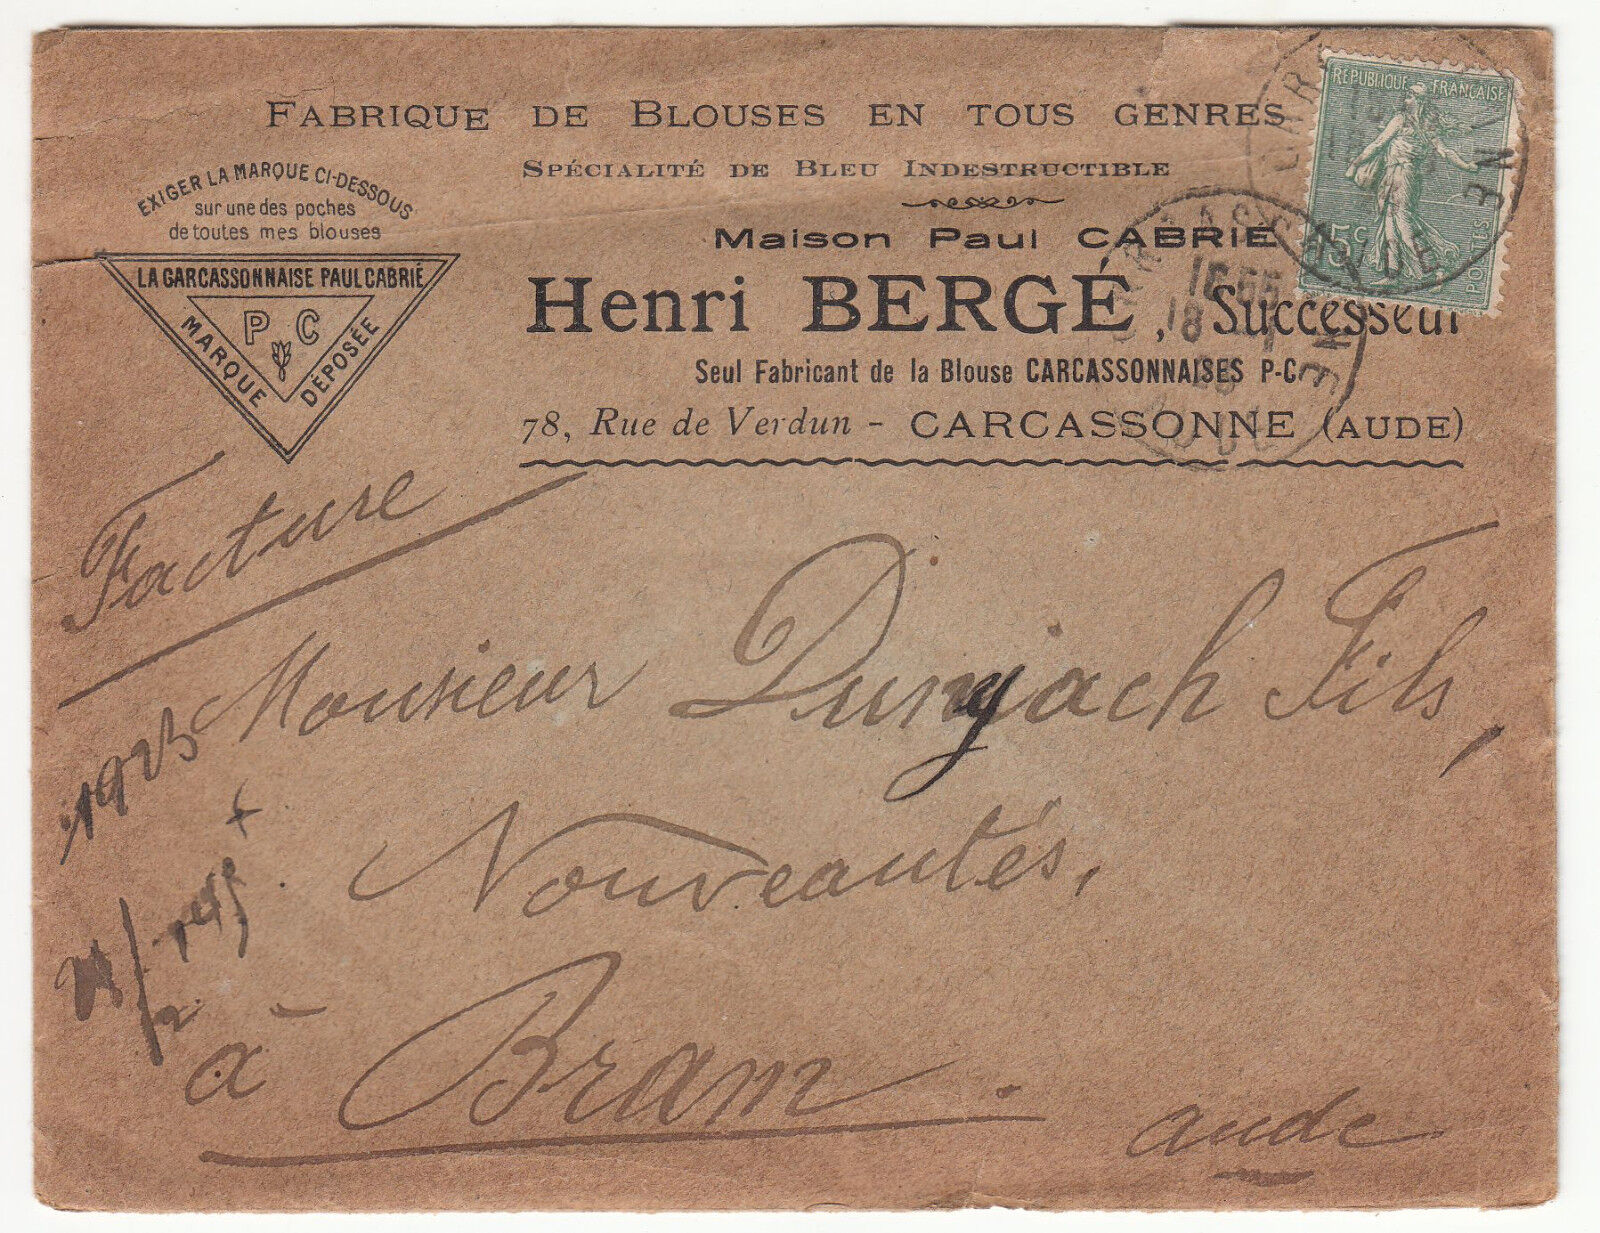 FABRIQUE DE BLOUSES EN TOUS GENRES
SPÉCIALITÉ DE BLEU INDESTRUCTIBLE
Maison Paul CABRIÉ
Henri BERGÉ, Successeur
Seul Fabricant de la Blouse CARCASSONNAISES P-C
78, Rue de Verdun - CARCASSONNE (AUDE)
EXIGER LA MARQUE CI-DESSOUS
sur une des poches
de toutes mes blouses
LA CARCASSONNAISE PAUL CABRIÉ
P C
MARQUE DÉPOSÉE
RÉPUBLIQUE FRANÇAISE
15c
POSTES
16 55
18
AUDE
Facture
Monsieur Dunyach Fils,
Nouveautés,
à Bram.
Aude
1923